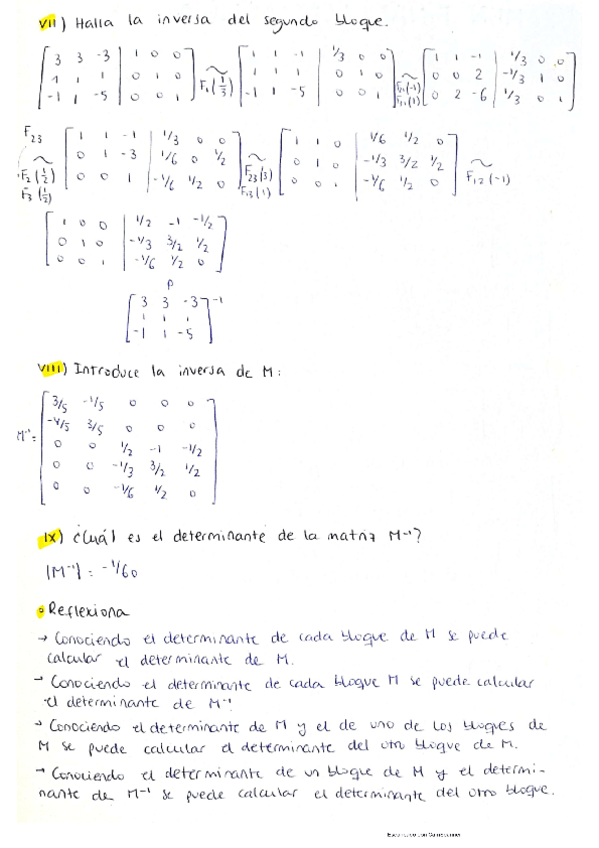 vii) Halla la inversa del segundo bloque.
[3 3 -3 | 1 0 0] ~ [1 1 -1 | 1/3 0 0] ~ [1 1 -1 | 1/3 0 0]
[1 1 1 | 0 1 0] F₁(1/3) [1 1 1 | 0 1 0] F₂₁(-1) [0 0 2 | -1/3 1 0]
[-1 1 -5 | 0 0 1] [-1 1 -5 | 0 0 1] F₃₁(1) [0 2 -6 | 1/3 0 1]
F23 [1 1 -1 | 1/3 0 0] [1 1 0 | 1/6 1/2 0]
~ F₂(1/2) [0 1 -3 | 1/6 0 1/2] ~ F23(3) [0 1 0 | -1/3 3/2 1/2] ~ F12(-1)
F₃(1/2) [0 0 1 | -1/6 1/2 0] F13(1) [0 0 1 | -1/6 1/2 0]
[1 0 0 | 1/2 -1 -1/2]
[0 1 0 | -1/3 3/2 1/2]
[0 0 1 | -1/6 1/2 0]
[3 3 -3]⁻¹
[1 1 1]
[-1 1 -5]
viii) Introduce la inversa de M:
[3/5 -1/5 0 0 0]
[-4/5 3/5 0 0 0]
M⁻¹= [0 0 1/2 -1 -1/2]
[0 0 -1/3 3/2 1/2]
[0 0 -1/6 1/2 0]
ix) ¿Cuál es el determinante de la matriz M⁻¹?
|M⁻¹| = -1/60
• Reflexiona
→ Conociendo el determinante de cada bloque de M se puede
calcular el determinante de M.
→ Conociendo el determinante de cada bloque M se puede calcular
el determinante de M⁻¹
→ Conociendo el determinante de M y el de uno de los bloques de
M se puede calcular el determinante del otro bloque de M.
→ Conociendo el determinante de un bloque de M y el determi-
nante de M⁻¹ se puede calcular el determinante del otro bloque.
Escaneado con CamScanner